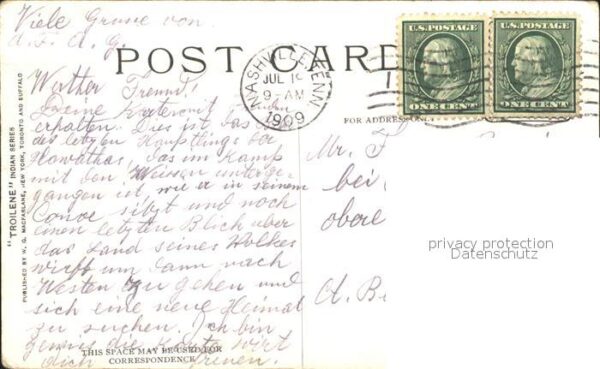 Viele Grüsse von
A. F. A. G.
POST CARD
U.S. POSTAGE
ONE CENT
U.S. POSTAGE
ONE CENT
NASHVILLE, TENN
JUL
9-AM
1909
FOR ADDRESS ONLY
Werther Freund!
Deine Karte mit
erhalten. Dies ist das
des letzten Häuptlings der
Hiawathas, das im Kampf
mit den Weissen unterge-
gangen ist, wie er in seinem
Canoe sitzt und noch
einen letzten Blick über
das Land seines Volkes
wirft um dann nach
Westen zu gehen und
sich eine neue Heimat
zu suchen. Ich bin
gewiss die Karte wirt
dich freuen.
THIS SPACE MAY BE USED FOR
CORRESPONDENCE
"TROILENE" INDIAN SERIES
PUBLISHED BY W. G. MACFARLANE, NEW YORK, TORONTO AND BUFFALO
Mr. F
bei
obere
A. B
privacy protection
Datenschutz